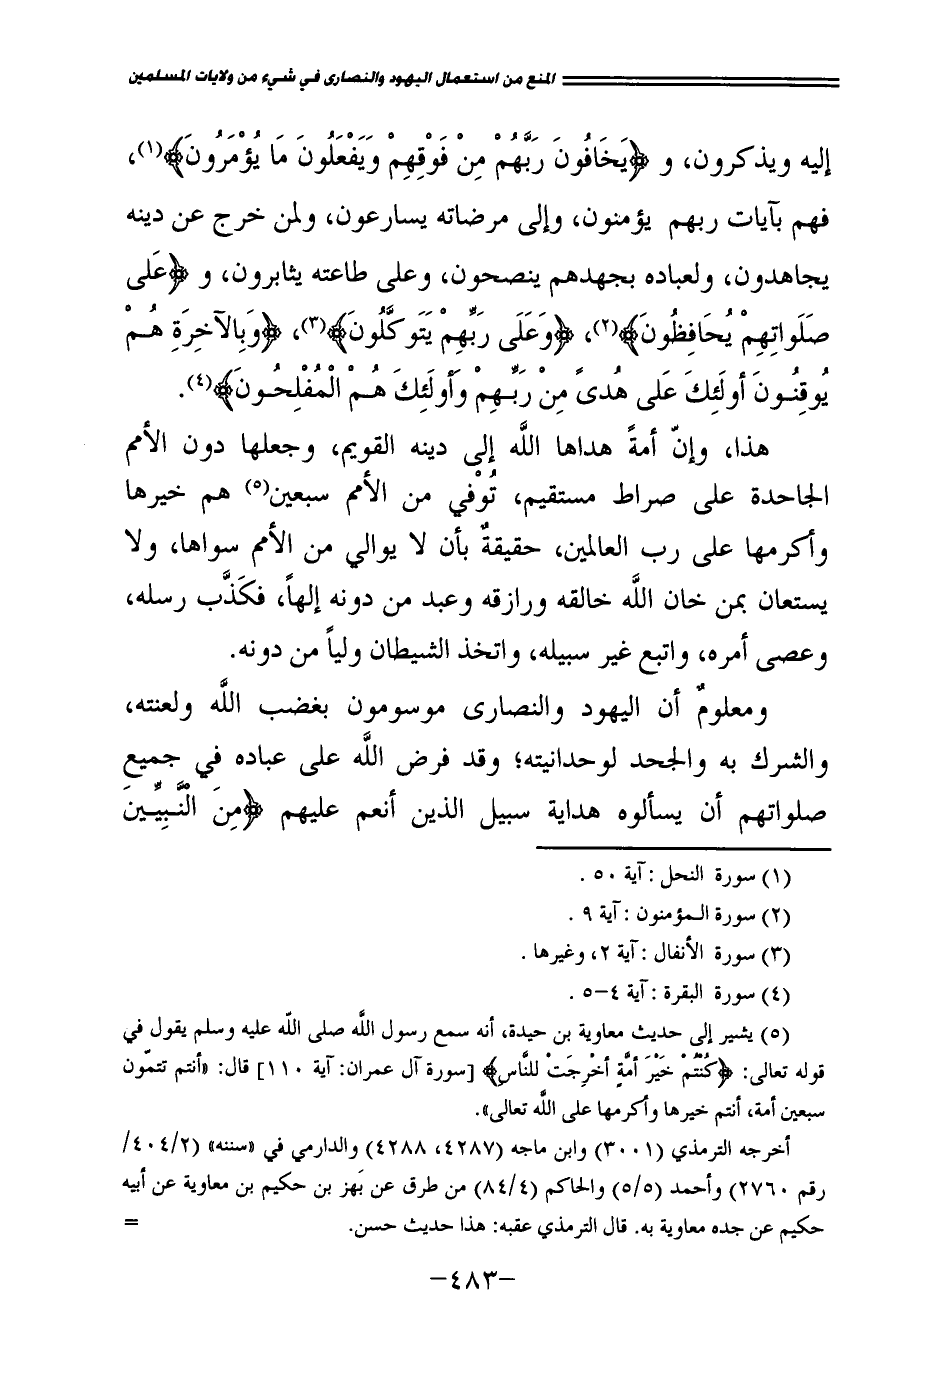 المنع من استعمال اليهود والنصارى في شيء من ولايات المسلمين
إليه ويذكرون، و ﴿يَخَافُونَ رَبَّهُمْ مِنْ فَوْقِهِمْ وَيَفْعَلُونَ مَا يُؤْمَرُونَ﴾(١)،
فهم بآيات ربهم يؤمنون، وإلى مرضاته يسارعون، ولمن خرج عن دينه
يجاهدون، ولعباده بجهدهم ينصحون، وعلى طاعته يثابرون، و ﴿عَلَى
صَلَوَاتِهِمْ يُحَافِظُونَ﴾(٢)، ﴿وَعَلَى رَبِّهِمْ يَتَوَكَّلُونَ﴾(٣)، ﴿وَبِالآخِرَةِ هُمْ
يُوقِنُونَ أُولَئِكَ عَلَى هُدىً مِنْ رَبِّهِمْ وَأُولَئِكَ هُمْ الْمُفْلِحُونَ﴾(٤).
هذا، وإنّ أمةً هداها اللَّه إلى دينه القويم، وجعلها دون الأمم
الجاحدة على صراط مستقيم، تُوْفي من الأمم سبعين(٥) هم خيرها
وأكرمها على رب العالمين، حقيقةٌ بأن لا يوالي من الأمم سواها، ولا
يستعان بمن خان اللَّه خالقه ورازقه وعبد من دونه إلهاً، فكَذَّب رسله،
وعصى أمره، واتبع غير سبيله، واتخذ الشيطان ولياً من دونه.
ومعلومٌ أن اليهود والنصارى موسومون بغضب اللَّه ولعنته،
والشرك به والجحد لوحدانيته؛ وقد فرض اللَّه على عباده في جميع
صلواتهم أن يسألوه هداية سبيل الذين أنعم عليهم ﴿مِنَ النَّبِيِّينَ
(١) سورة النحل : آية ٥٠ .
(٢) سورة المؤمنون : آية ٩ .
(٣) سورة الأنفال : آية ٢، وغيرها .
(٤) سورة البقرة : آية ٤-٥ .
(٥) يشير إلى حديث معاوية بن حيدة، أنه سمع رسول اللَّه صلى اللَّه عليه وسلم يقول في
قوله تعالى: ﴿كُنْتُمْ خَيْرَ أُمَّةٍ أُخْرِجَتْ للنَّاسِ﴾ [سورة آل عمران: آية ١١٠] قال: «أنتم تتمّون
سبعين أمة، أنتم خيرها وأكرمها على اللَّه تعالى».
أخرجه الترمذي (٣٠٠١) وابن ماجه (٤٢٨٧، ٤٢٨٨) والدارمي في «سننه» (٤٠٤/٢/
رقم ٢٧٦٠) وأحمد (٥/٥) والحاكم (٨٤/٤) من طرق عن بَهز بن حكيم بن معاوية عن أبيه
حكيم عن جده معاوية به. قال الترمذي عقبه: هذا حديث حسن. =
-٤٨٣-